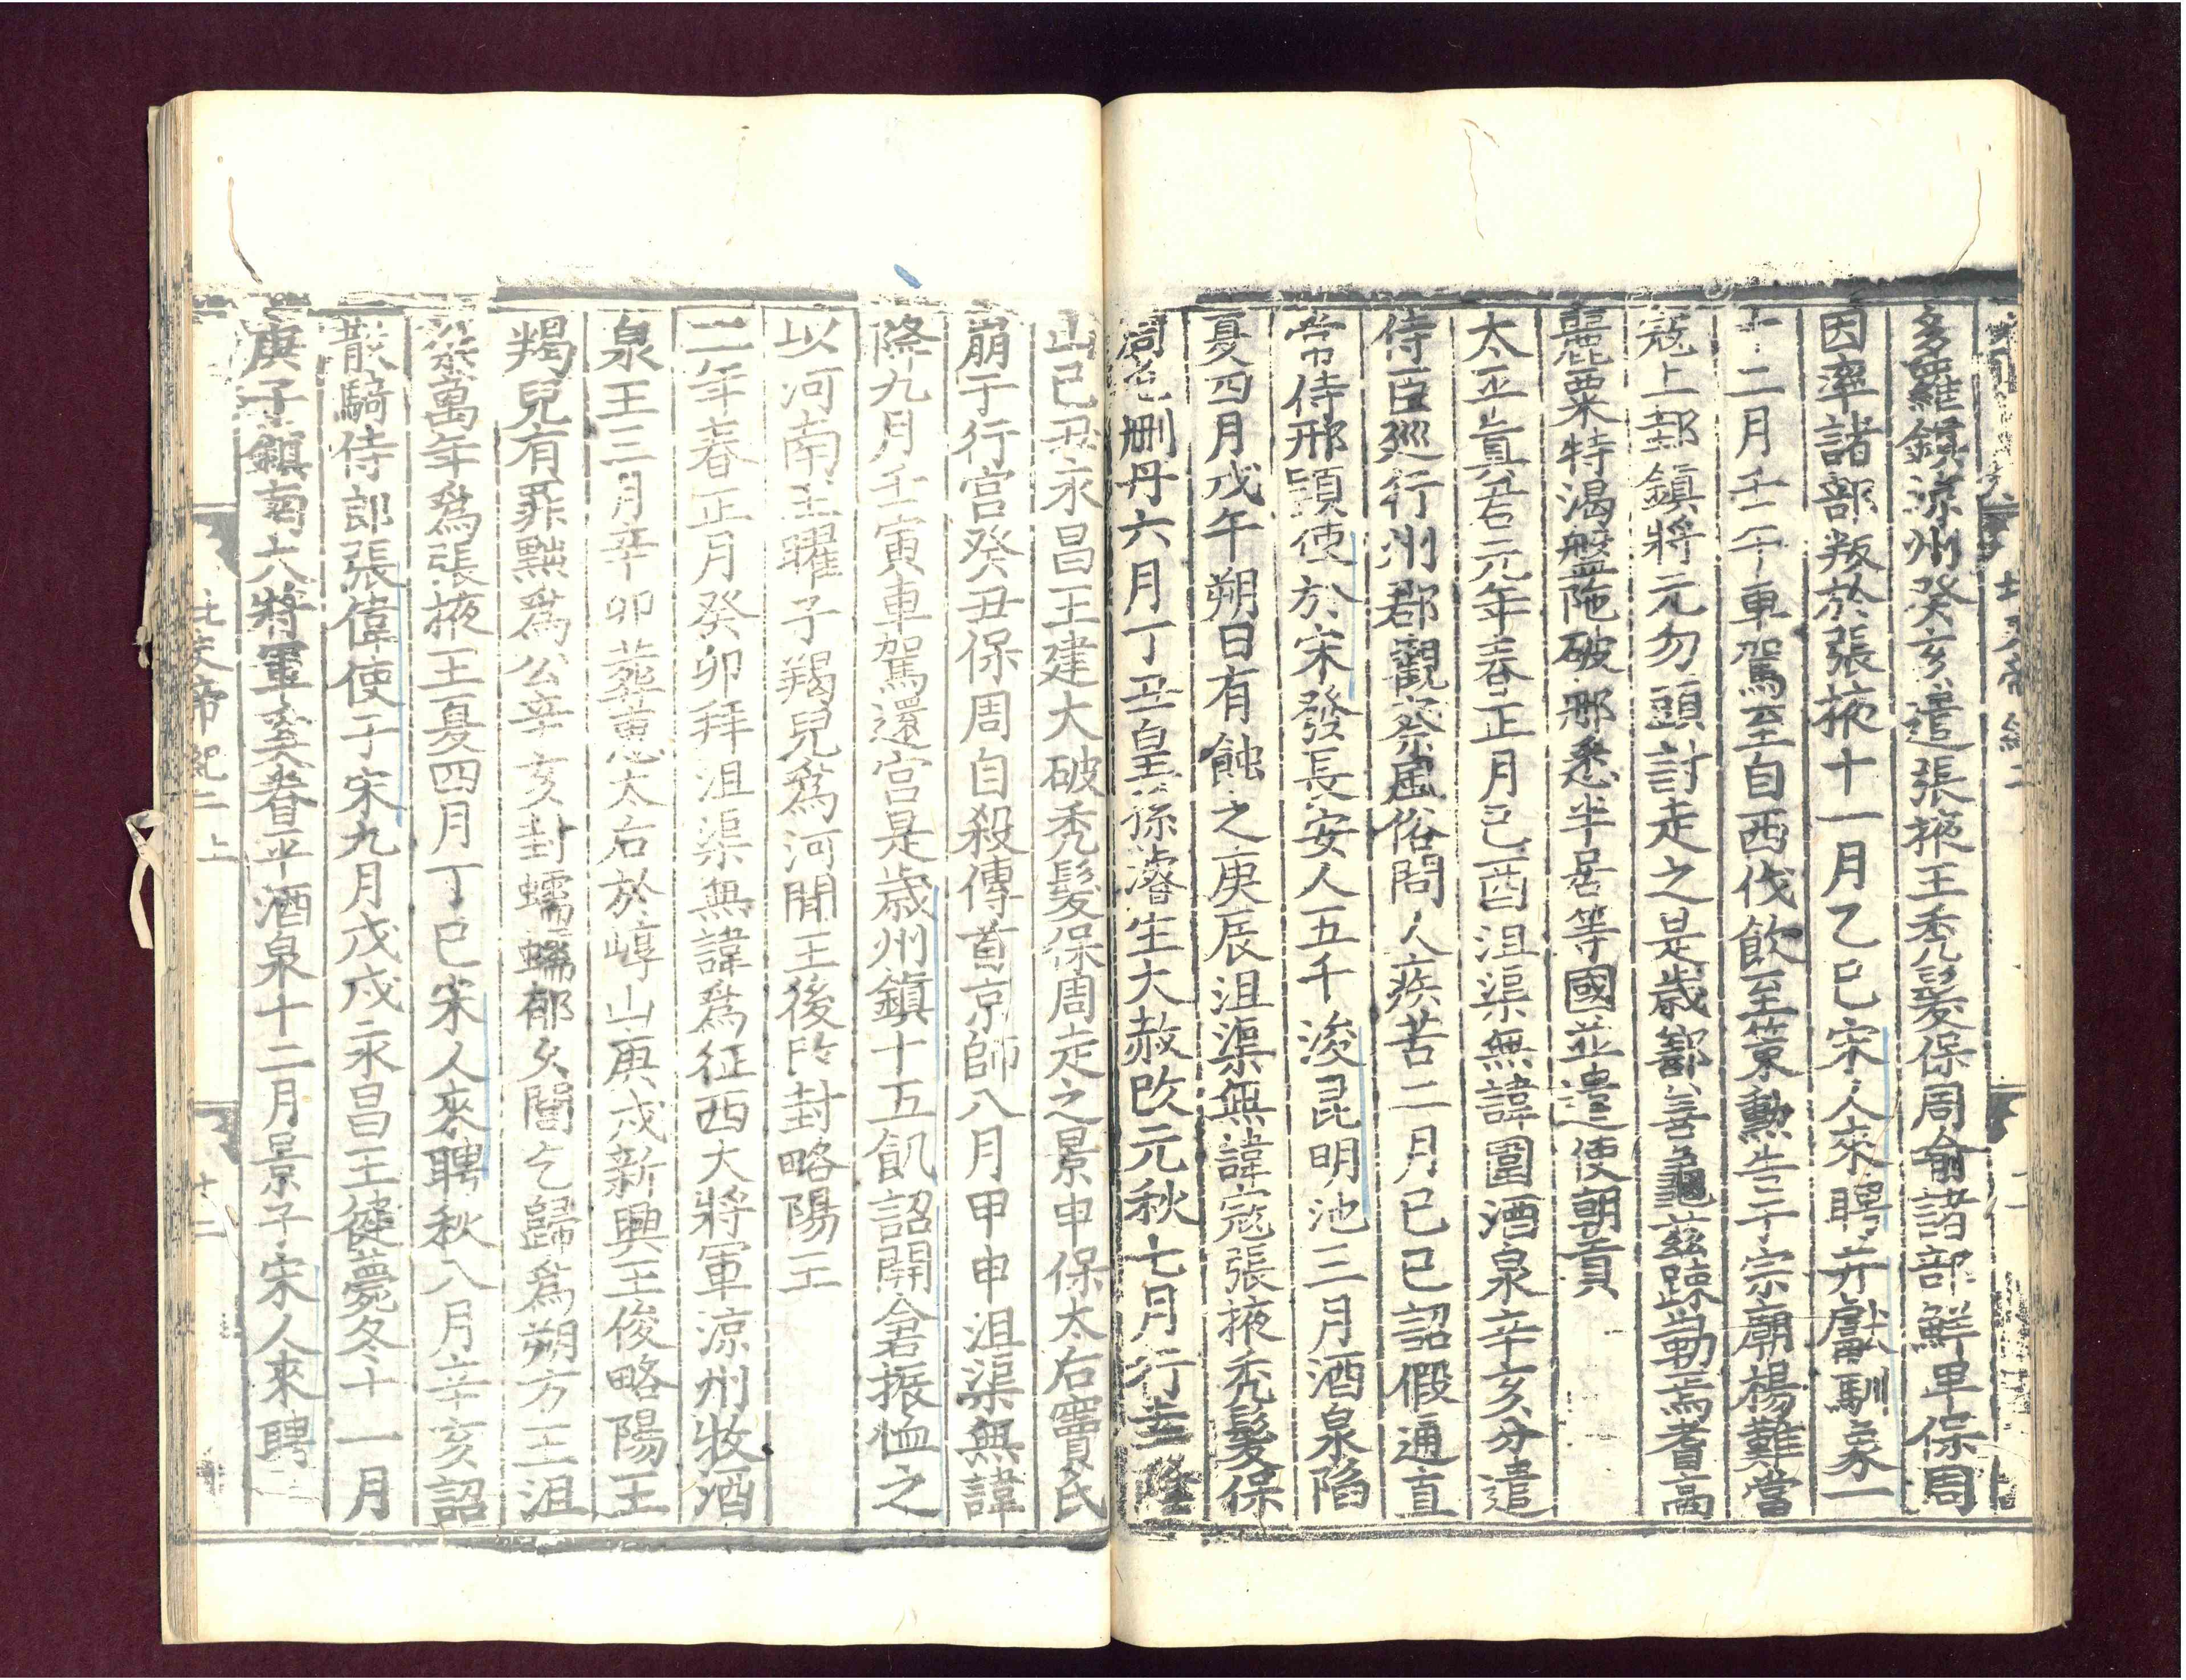 多羅鎮涼州癸亥遣張掖王禿髮保周喻諸部鮮卑保周
因率諸部叛於張掖十一月乙巳宋人來聘并獻馴象一
十二月壬午車駕至自西伐飲至策勳告于宗廟楊難當
寇上邽鎮將元勿頭討走之是歲鄯善龜茲踈勒焉耆高
麗粟特渴盤陁破那悉半居等國並遣使朝貢
太平真君元年春正月己酉沮渠無諱圍酒泉辛亥分遣
侍臣巡行州郡觀察風俗問人疾苦二月己巳詔假通直
常侍邢頴使於宋發長安人五千浚昆明池三月酒泉陷
夏四月戊午朔日有蝕之庚辰沮渠無諱寇張掖禿髮保
周屯刪丹六月丁丑皇孫濬生大赦改元秋七月行幸陰
山己丑永昌王建大破禿髮保周走之景申保太后竇氏
崩于行宮癸丑保周自殺傳首京師八月甲申沮渠無諱
降九月壬寅車駕還宮是歲州鎮十五飢詔開倉振恤之
以河南王曜子羯兒爲河間王後改封略陽王
二年春正月癸卯拜沮渠無諱爲征西大將軍涼州牧酒
泉王三月辛卯葬惠太后於崞山庚戌新興王俊略陽王
羯兒有罪黜爲公辛亥封蠕蠕郁久閭乞歸爲朔方王沮
渠萬年爲張掖王夏四月丁巳宋人來聘秋八月辛亥詔
散騎侍郎張偉使于宋九月戊戌永昌王健薨冬十一月
庚子鎮南六將軍奚眷平酒泉十二月景子宋人來聘
北史帝紀二上
十二